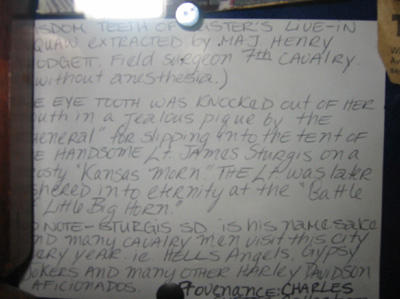 ISDOM TEETH OF USTER'S LIVE-IN
QUAW EXTRACTED by MAJ HENRY
ODGETT, Field surgeon 7th CAVALRY.
without anesthesia.)
E EYE TOOTH WAS KNOCKED OUT OF HER
outh in a Jealous pique by the
eneral" for slipping into the tent of
E HANDSOME Lt. James Sturgis on a
osty "Kansas Morn." THE Lt. was later
shered into eternity at the "Battle
Little Big Horn."
D NOTE-STURGIS SD is his namesake
nd many cavalry men visit this city
ery year. ie HELLS Angels, Gypsy
okers AND MANY OTHER HARley DAVIDSON
AFICIONADOS. Provenance: CHARLES